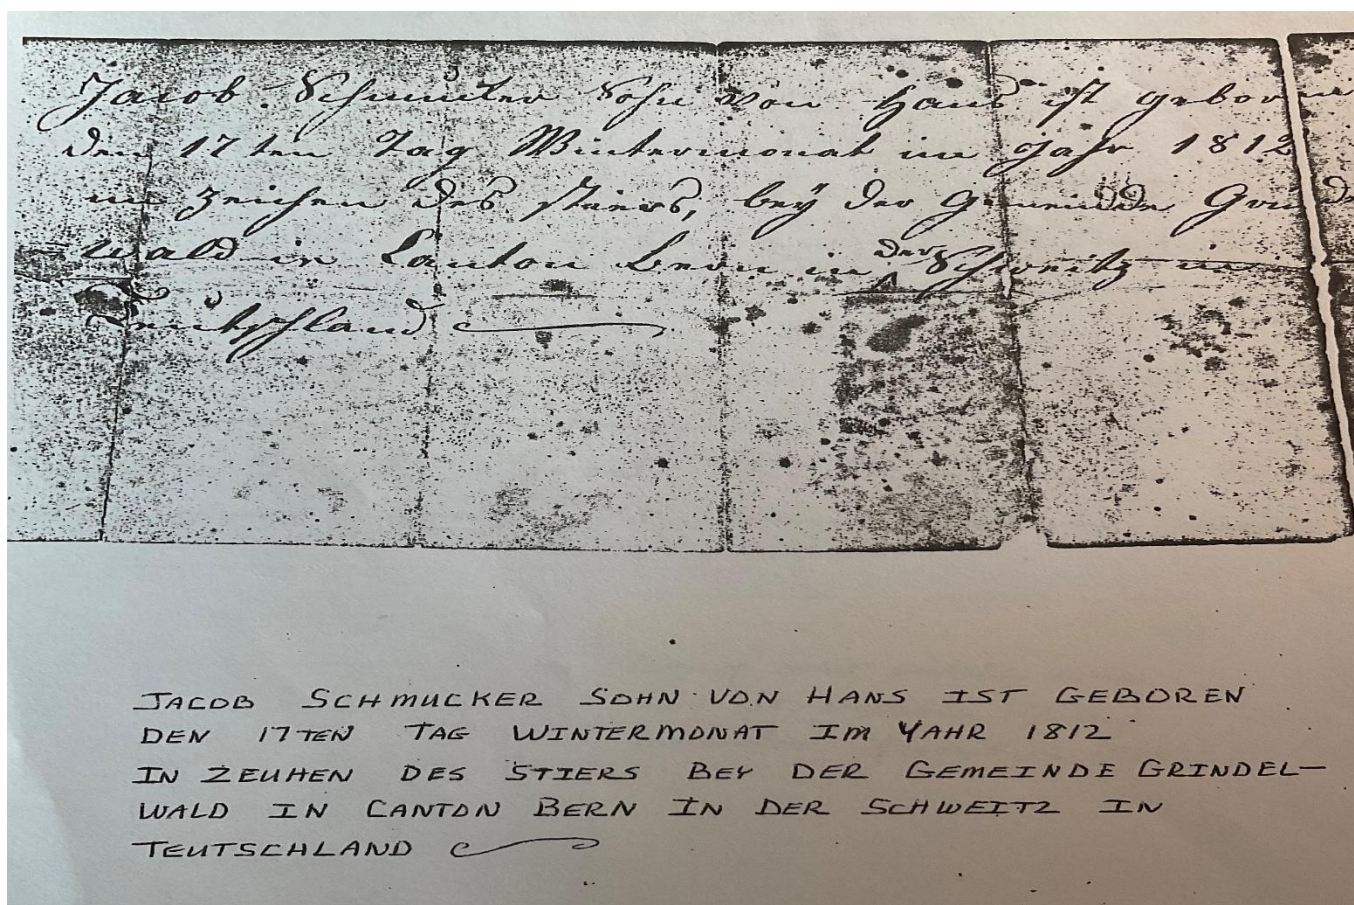 Jacob Schmucker Sohn von Hans ist geboren
den 17ten Tag Wintermonat im Jahr 1812
im Zeichen des Stiers, bey der Gemeindde Grinde
wald in Canton Bern in der Schweitz in
Teutschland
JACOB SCHMUCKER SOHN VON HANS IST GEBOREN
DEN 17TEN TAG WINTERMONAT IM YAHR 1812
IN ZEUHEN DES STIERS BEY DER GEMEINDE GRINDEL-
WALD IN CANTON BERN IN DER SCHWEITZ IN
TEUTSCHLAND